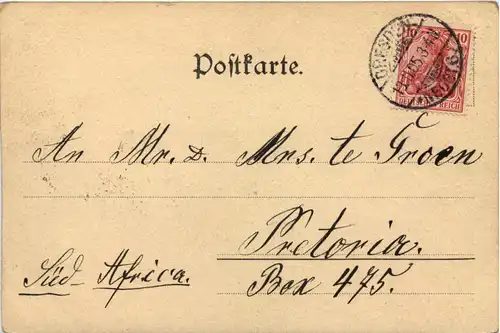 DRESDEN
10 10
DEUTSCHES REICH
Postkarte.
An Mr. & Mrs. te Groen
Pretoria.
Süd-Africa. Box 475.